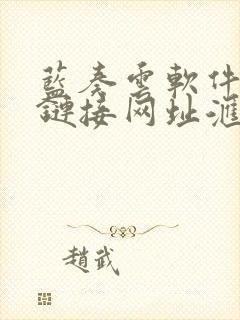 藍奏雲軟件
鏈接网址滙
趙武